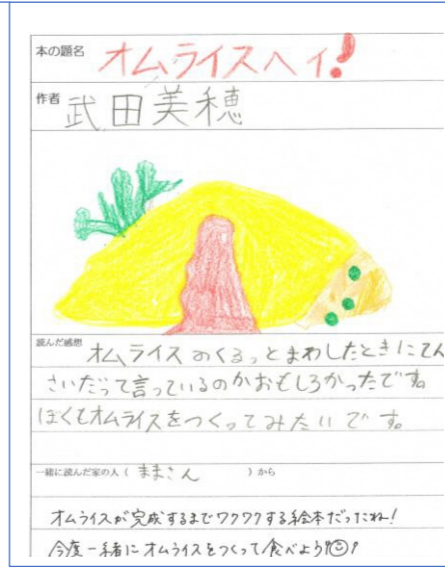 本の題名 オムライスヘイ!
作者 武田美穂
読んだ感想 オムライスのくるっとまわしたときにてん
さいだって言っているのがおもしろかったです。
ぼくもオムライスをつくってみたいです。
一緒に読んだ家の人( ままさん )から
オムライスが完成するまでワクワクする絵本だったね!
今度一緒にオムライスをつくって食べよう